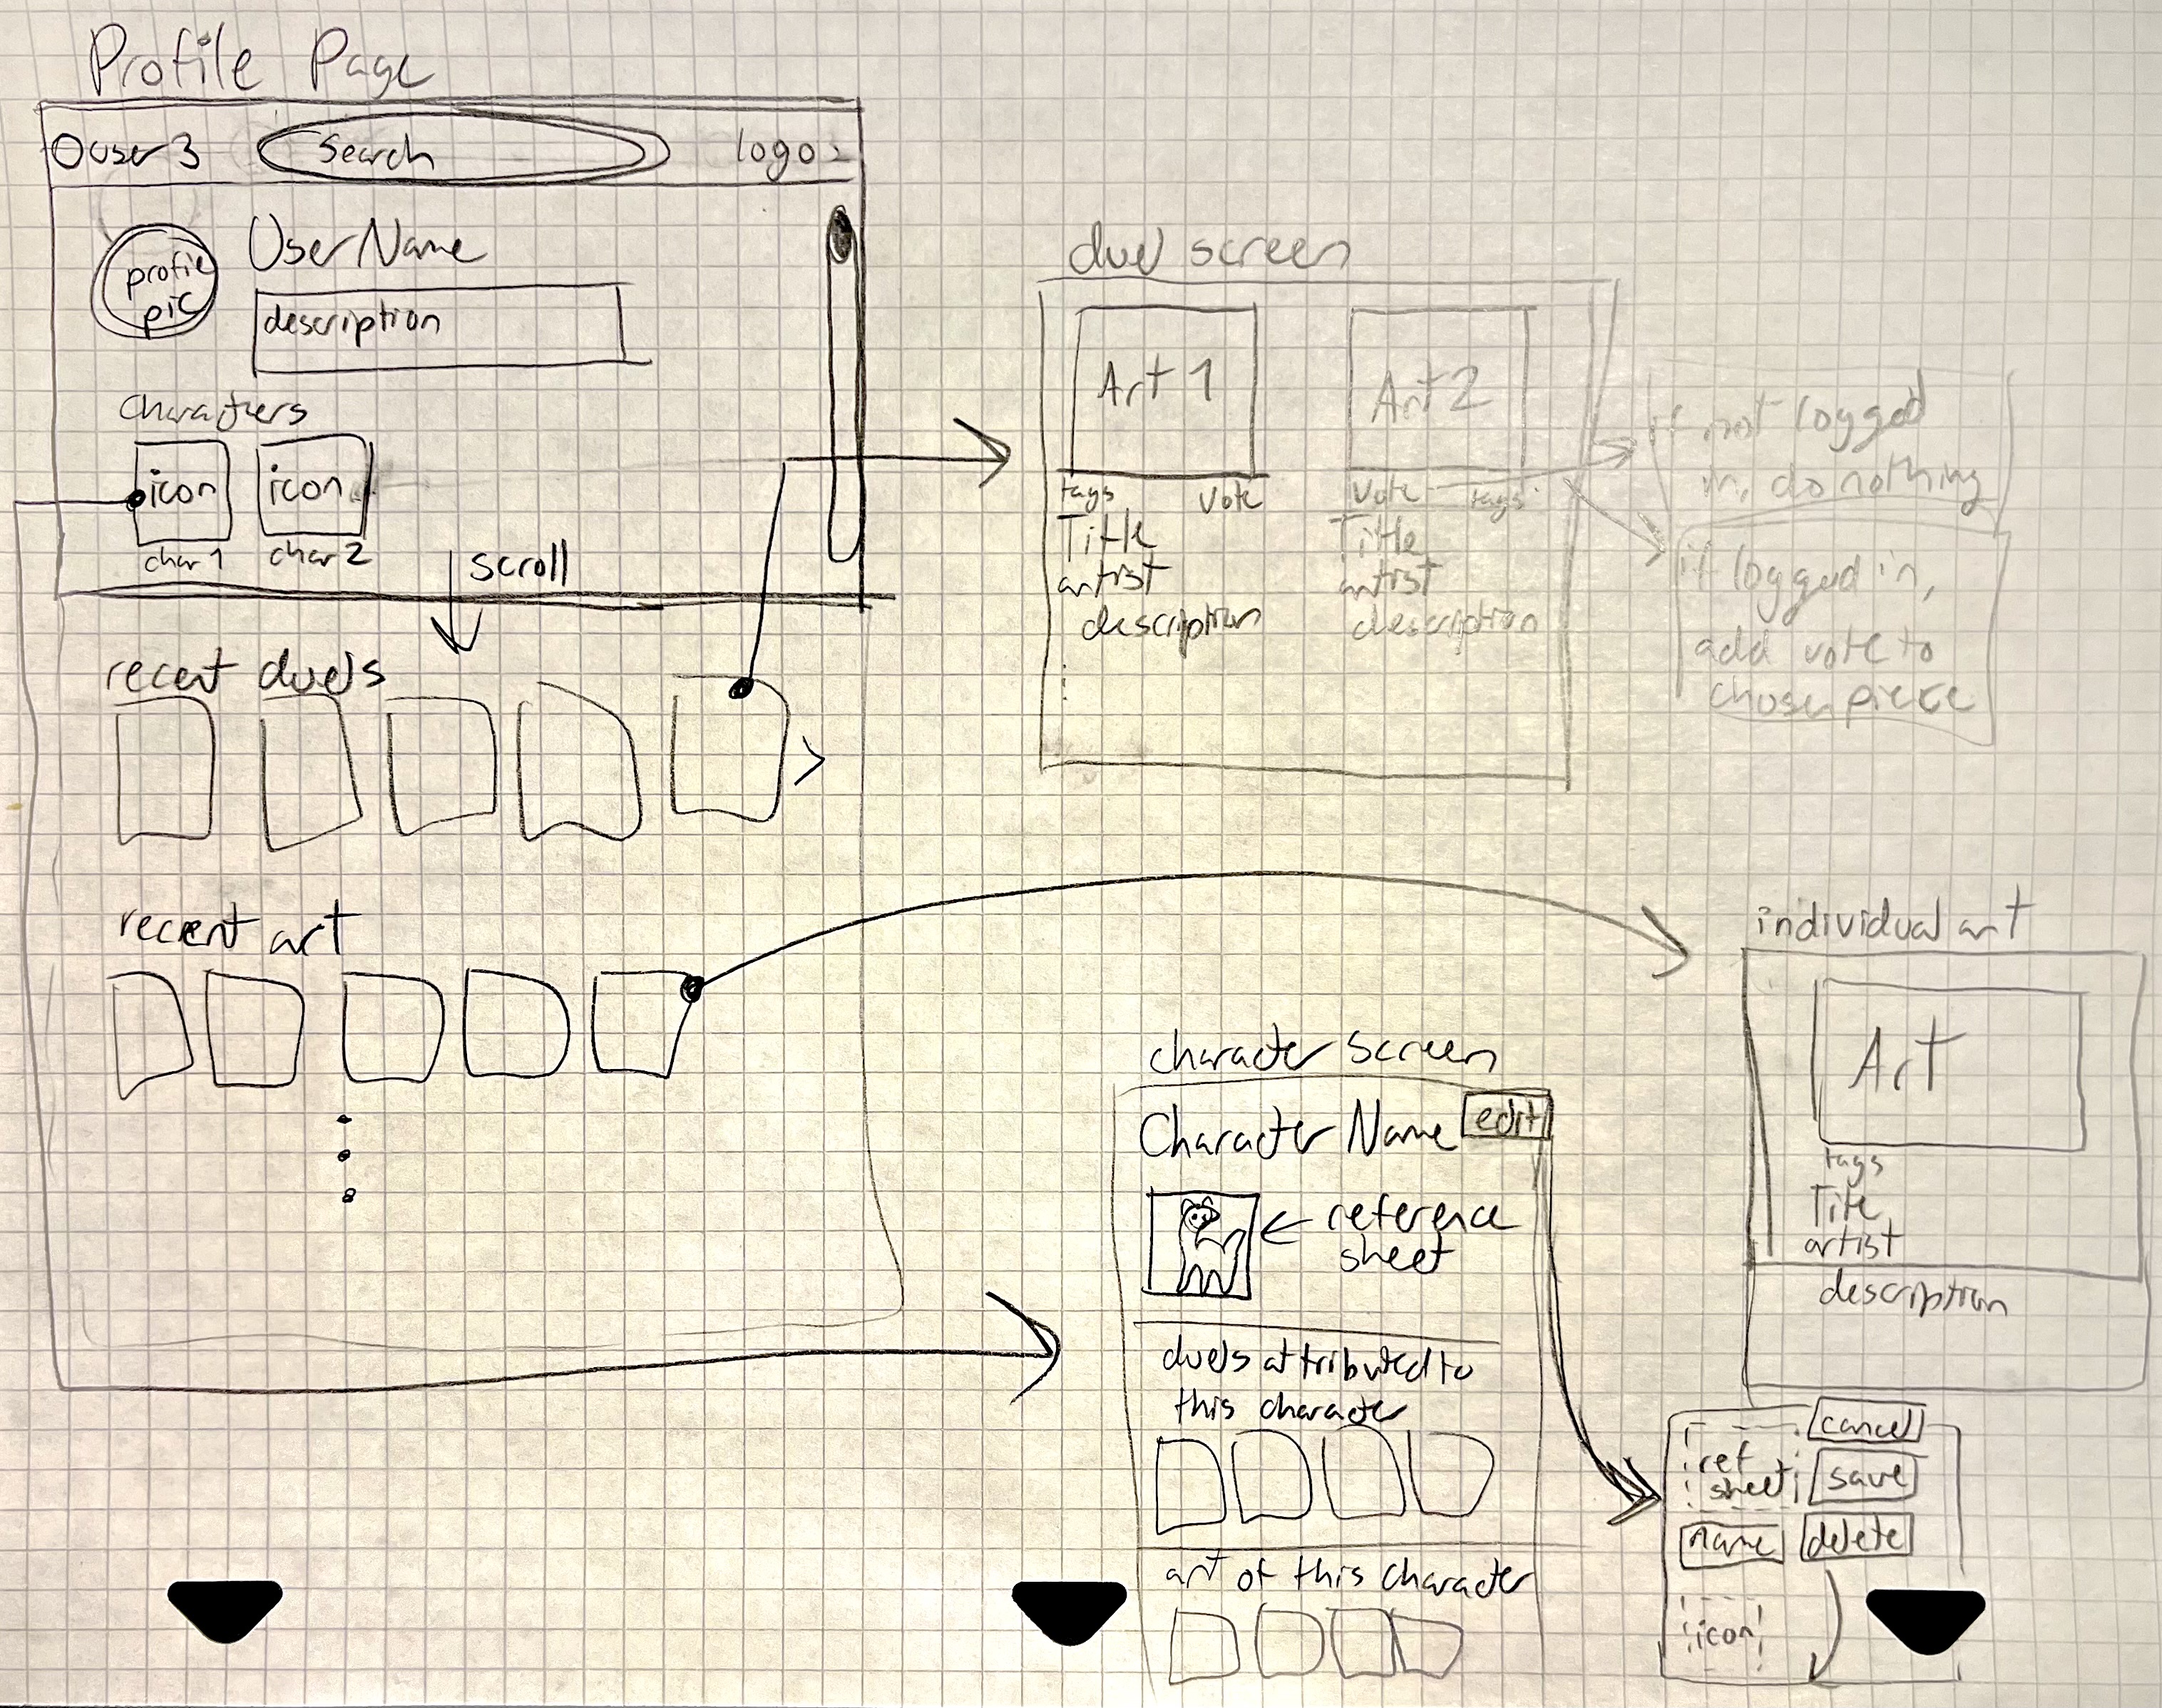 Profile Page
user 3
Search
logo
UserName
profile
pic
description
characters
icon
icon
char 1
char 2
scroll
recent duels
recent art
duel screen
Art 1
Art 2
tags
vote
vote
tags
Title
artist
description
Title
artist
description
if not logged
in, do nothing
if logged in,
add vote to
chosen piece
individual art
Art
tags
Title
artist
description
character screen
Character Name
edit
reference
sheet
duels attributed to
this character
art of this character
cancel
ref
sheet
save
name
delete
icon